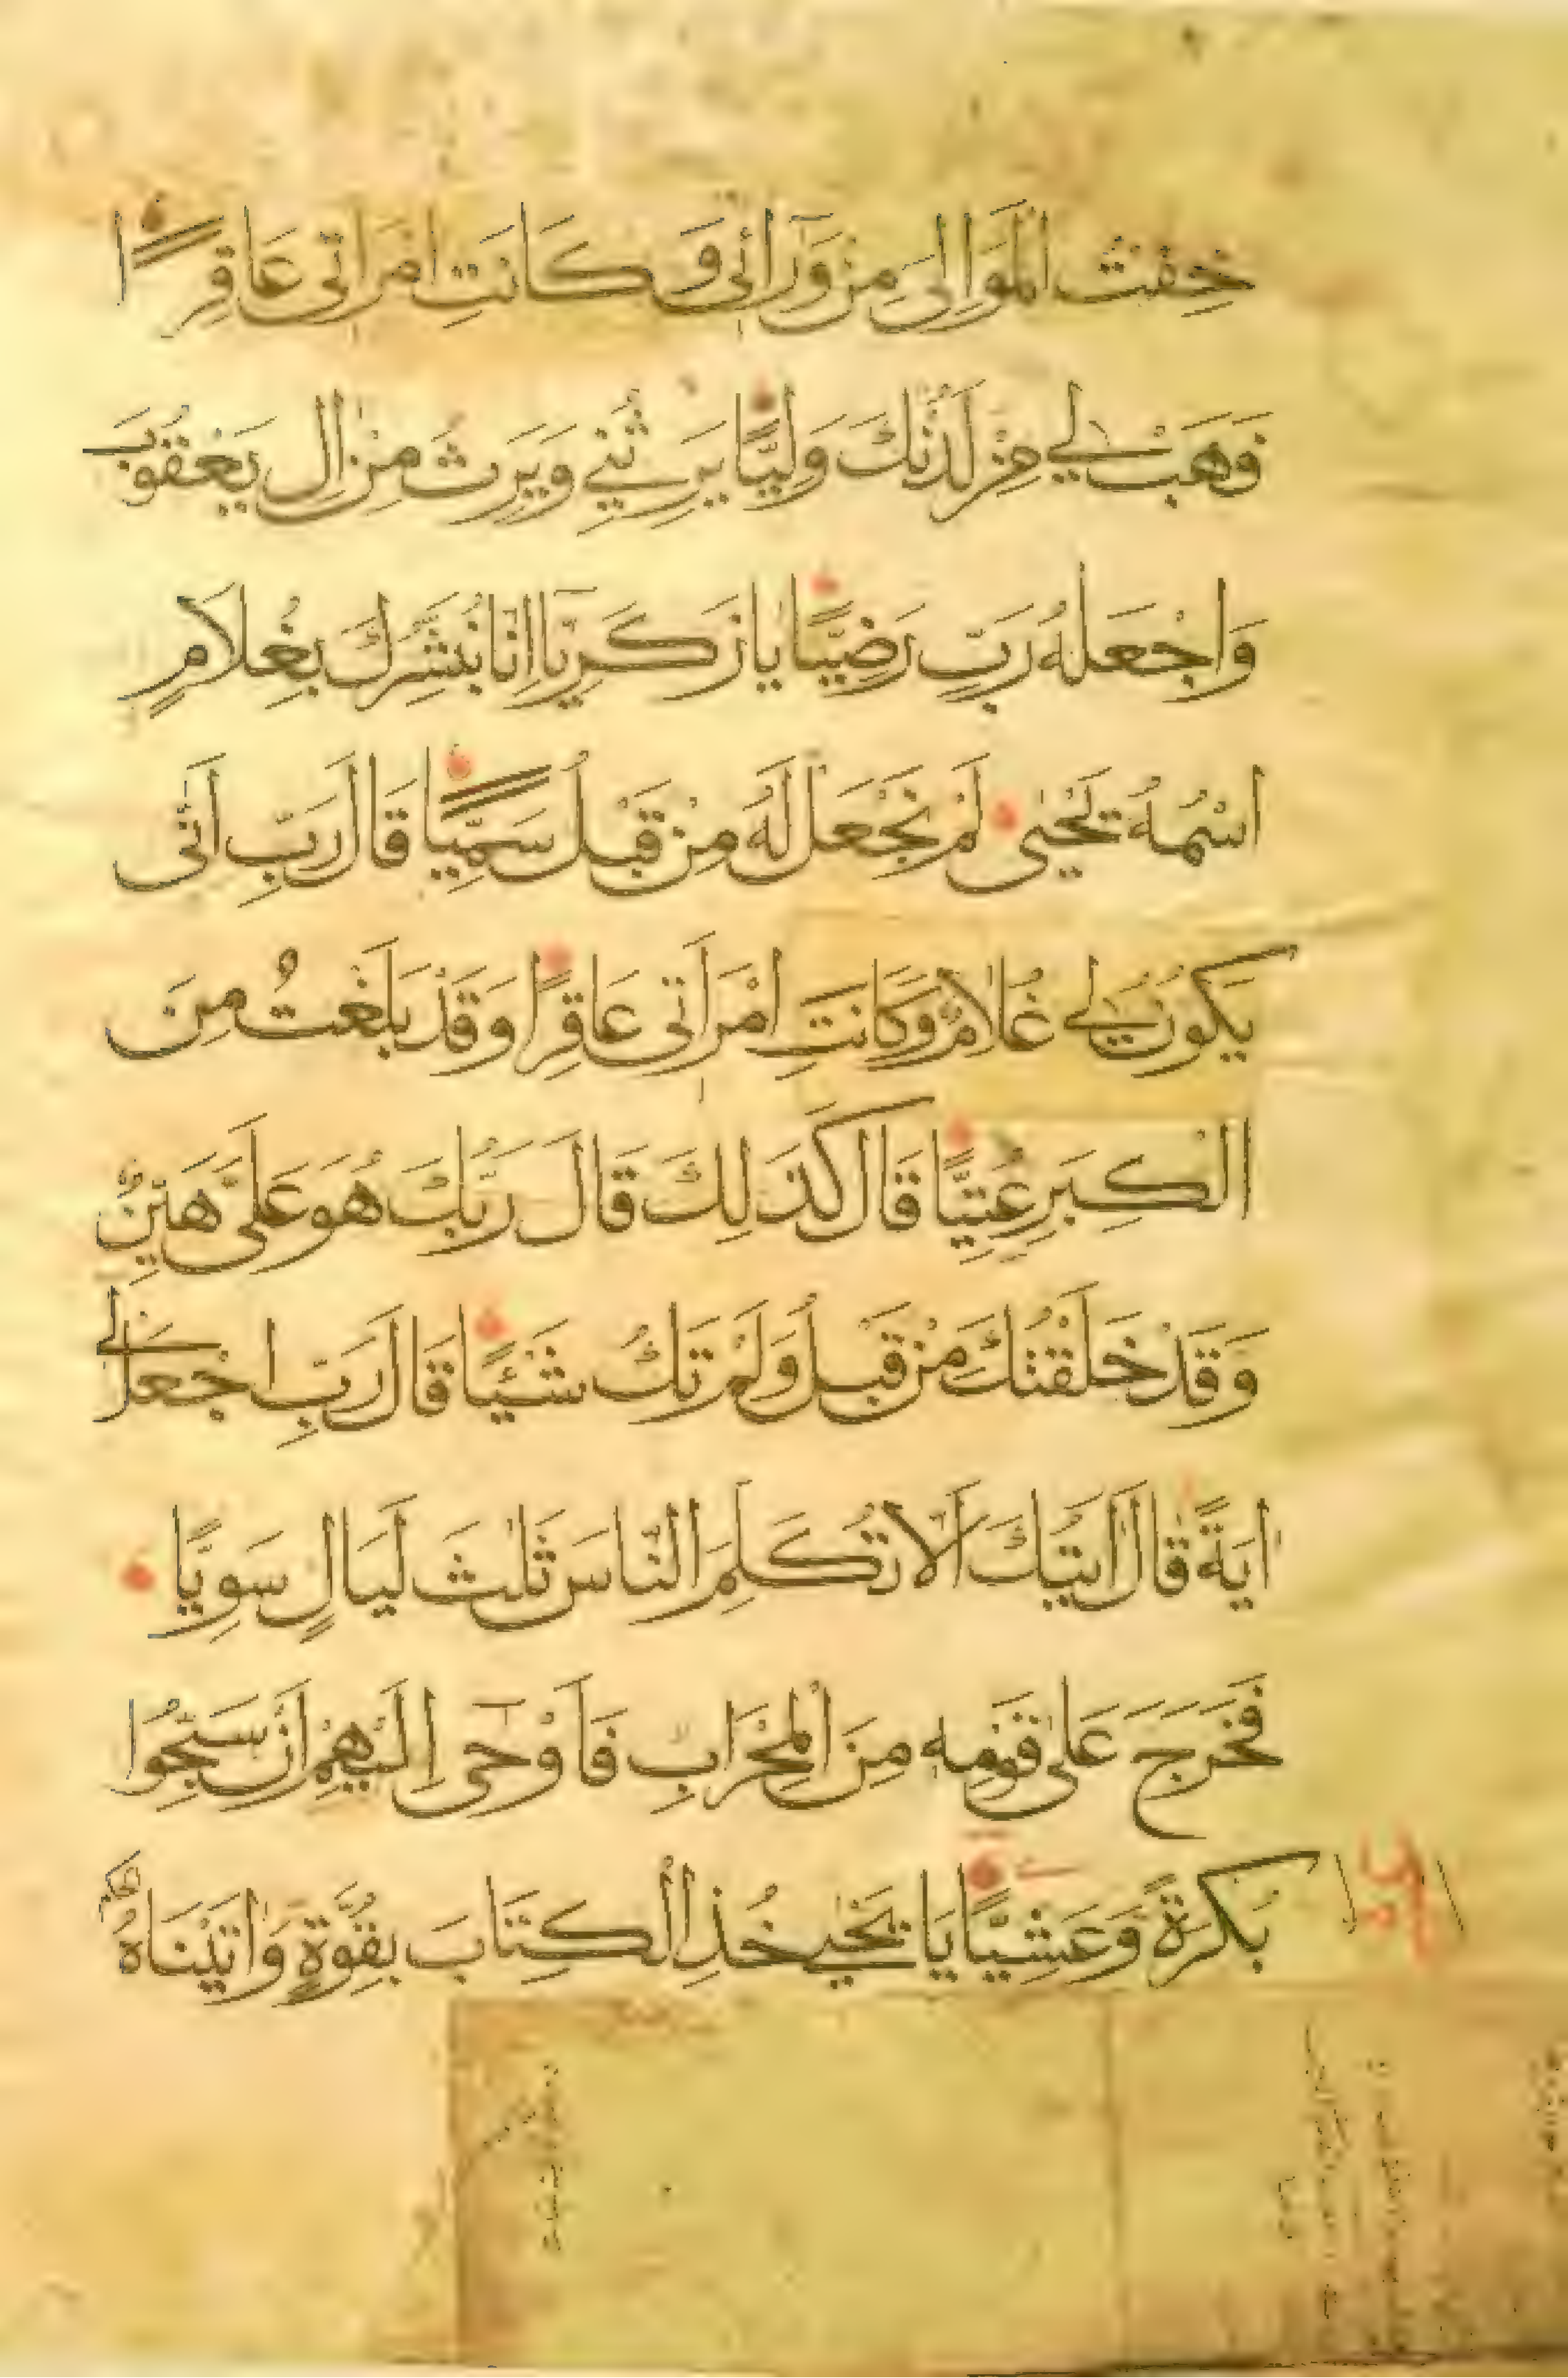 خِفْتُ الْمَوَالِيَ مِنْ وَرَائِي وَكَانَتِ امْرَاَتِي عَاقِرًا
فَهَبْ لِي مِنْ لَدُنْكَ وَلِيًّا يَرِثُنِي وَيَرِثُ مِنْ اٰلِ يَعْقُوبَ
وَاجْعَلْهُ رَبِّ رَضِيًّا يَا زَكَرِيَّا اِنَّا نُبَشِّرُكَ بِغُلَامٍ
اسْمُهُ يَحْيٰى لَمْ نَجْعَلْ لَهُ مِنْ قَبْلُ سَمِيًّا قَالَ رَبِّ اَنّٰى
يَكُونُ لِي غُلَامٌ وَكَانَتِ امْرَاَتِي عَاقِرًا وَقَدْ بَلَغْتُ مِنَ
الْكِبَرِ عُتِيًّا قَالَ كَذٰلِكَ قَالَ رَبُّكَ هُوَ عَلَيَّ هَيِّنٌ
وَقَدْ خَلَقْتُكَ مِنْ قَبْلُ وَلَمْ تَكُ شَيْئًا قَالَ رَبِّ اجْعَلْ لِي
اٰيَةً قَالَ اٰيَتُكَ اَلَّا تُكَلِّمَ النَّاسَ ثَلٰثَ لَيَالٍ سَوِيًّا
فَخَرَجَ عَلٰى قَوْمِهِ مِنَ الْمِحْرَابِ فَاَوْحٰى اِلَيْهِمْ اَنْ سَبِّحُوا
بُكْرَةً وَعَشِيًّا يَا يَحْيٰى خُذِ الْكِتَابَ بِقُوَّةٍ وَاٰتَيْنَاهُ الْحُكْمَ